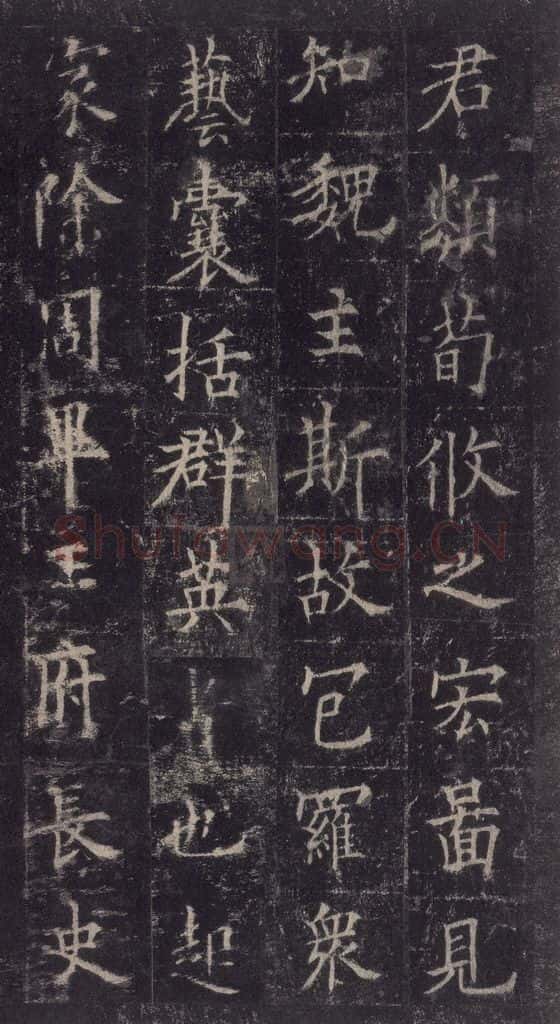 君類荀攸之宏啚見
知魏主斯故包羅衆
藝囊括群英也起
家除周畢王府長史
Shufawang.CN